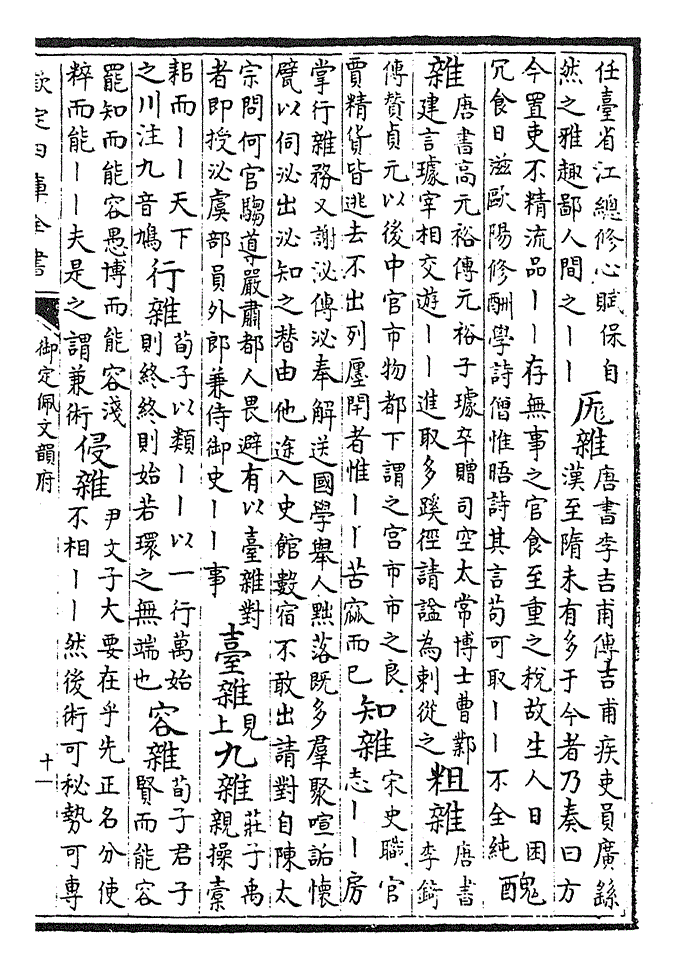 任臺省江總修心賦保自
然之雅趣鄙人間之丨丨
厖雜
唐書李吉甫傳吉甫疾吏員廣繇
漢至隋未有多于今者乃奏曰方
今置吏不精流品丨丨存無事之官食至重之稅故生人日困
冗食日滋歐陽修酬學詩僧惟晤詩其言苟可取丨丨不全純
醜
雜
唐書高元裕傳元裕子璩卒贈司空太常博士曹鄴
建言璩宰相交遊丨丨進取多蹊徑請謚為剌從之
粗雜
唐書
李錡
傳贊貞元以後中官市物都下謂之宫市市之良
賈精貨皆逃去不出列廛閈者惟丨丨苦窳而已
知雜
宋史職官
志丨丨房
掌行雜務又謝泌傳泌奉解送國學舉人黜落既多羣聚喧詬懷
甓以伺泌出泌知之替由他途入史館數宿不敢出請對自陳太
宗問何官騶導嚴肅都人畏避有以臺雜對
者即授泌虞部員外郎兼侍御史丨丨事
臺雜
見
上
九雜
莊子禹
親操橐
耜而丨丨天下
之川注九音鳩
行雜
荀子以類丨丨以一行萬始
則終終則始若環之無端也
容雜
荀子君子
賢而能容
罷知而能容愚博而能容淺
粹而能丨丨夫是之謂兼術
侵雜
尹文子大要在乎先正名分使
不相丨丨然後術可秘勢可專
欽定四庫全書
御定佩文韻府
十一